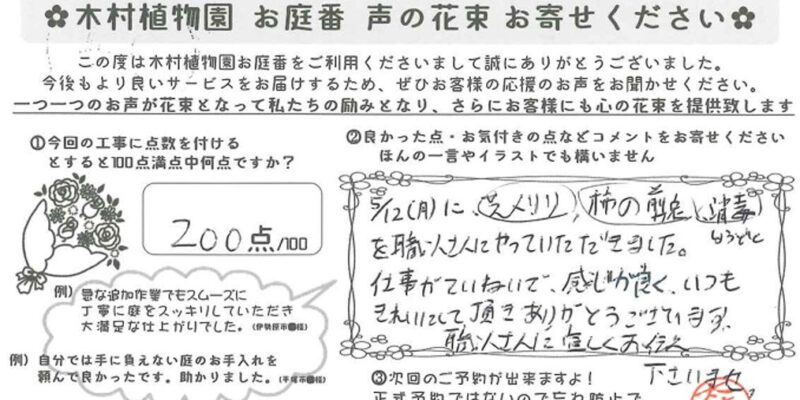 ✿木村植物園 お庭番 声の花束 お寄せください✿
この度は木村植物園お庭番をご利用くださいまして誠にありがとうございました。
今後もより良いサービスをお届けするため、ぜひお客様の応援のお声をお聞かせください。
一つ一つのお声が花束となって私たちの励みとなり、さらにお客様にも心の花束を提供致します
①今回の工事に点数を付ける
とすると100点満点中何点ですか？
200点/100
例）急な追加作業でもスムーズに
丁寧に庭をスッキリしていただき
大満足な仕上がりでした。(伊勢原市 様)
例）自分では手に負えない庭のお手入れを
頼んで良かったです。助かりました。(平塚市 様)
②良かった点・お気付きの点などコメントをお寄せください
ほんの一言やイラストでも構いません
5/12(月)に、 柿の剪定、消毒
しょうどく
を職人さんにやっていただきました。
仕事がていねいで、感じが良く、いつも
きれいにして頂きありがとうございます。
職人さんに宜しくお伝え
下さいませ
③次回のご予約が出来ますよ！
正式予約ではないので忘れ防止で